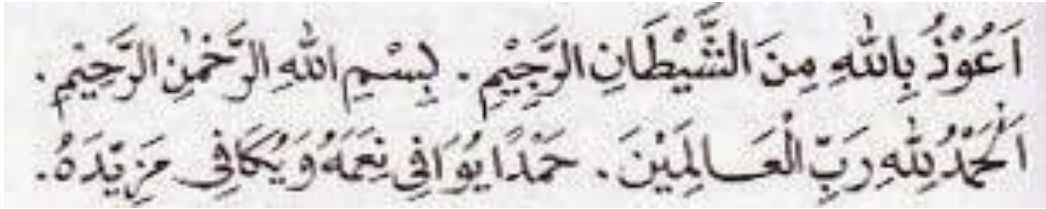 اَعُوْذُ بِاللهِ مِنَ الشَّيْطَانِ الرَّجِيْمِ. بِسْمِ اللهِ الرَّحْمٰنِ الرَّحِيْمِ.
اَلْحَمْدُ لِلّٰهِ رَبِّ الْعَالَمِيْنَ. حَمْدًا يُوَافِى نِعَمَهُ وَيُكَافِى مَزِيْدَهُ.